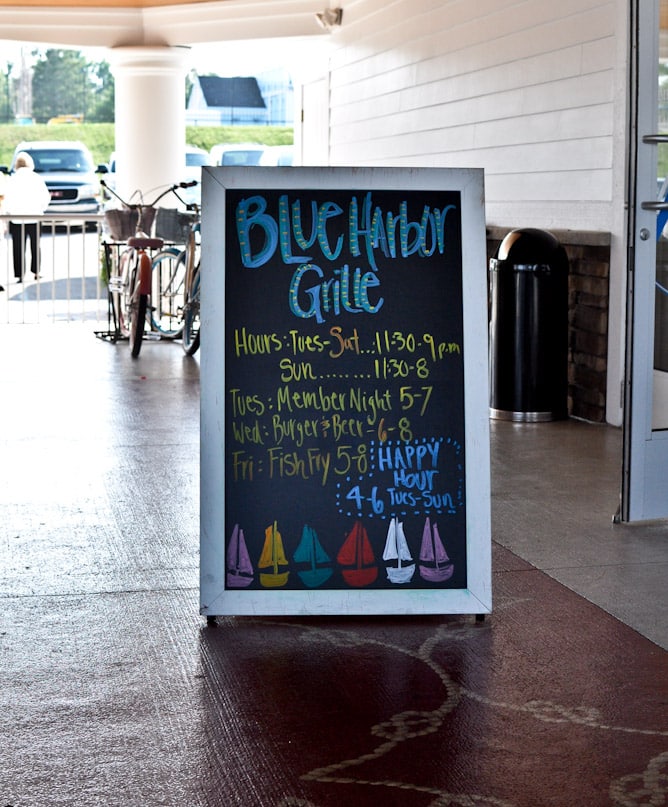 Blue Harbor
Grille
Hours: Tues-Sat...11:30-9pm
Sun.......11:30-8
Tues: Member Night 5-7
Wed: Burger & Beer - 6-8
Fri: Fish Fry 5-8
HAPPY
Hour
4-6 Tues-Sun